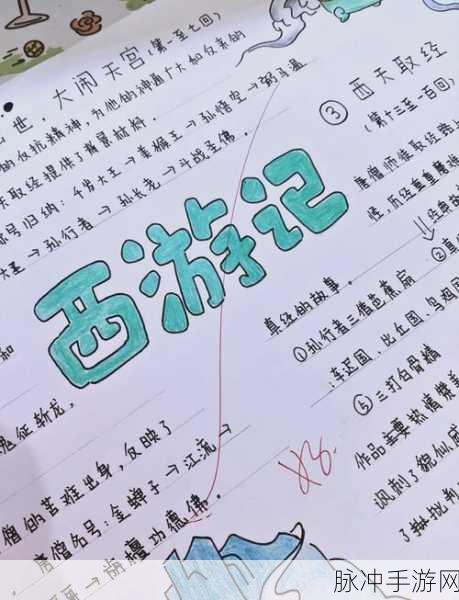 世，大闹天宫（第一至七回）
的反抗精神，为他的神通广大和反来的
天取经提供了背景材料。
称号归纳：千岁大王→美猴王→孙悟空→弼马温
大圣→孙行者→孙长老→斗战圣佛。
③ 西天取经
（第十三至一百回）
唐僧师徒取经路
怪，历经
经典故
真经的故事。
②真
①孙行者三借芭蕉扇
车迟国，比丘国，乌鸡国
⑤三打白骨精
作品主要热情赞美
讽刺了貌似
了并批判
西游记
和
魂征斩龙，
僧的苦难出身，反映了
唐僧名号：金蝉子→江流→
→旃檀功德佛。
脉冲手游网